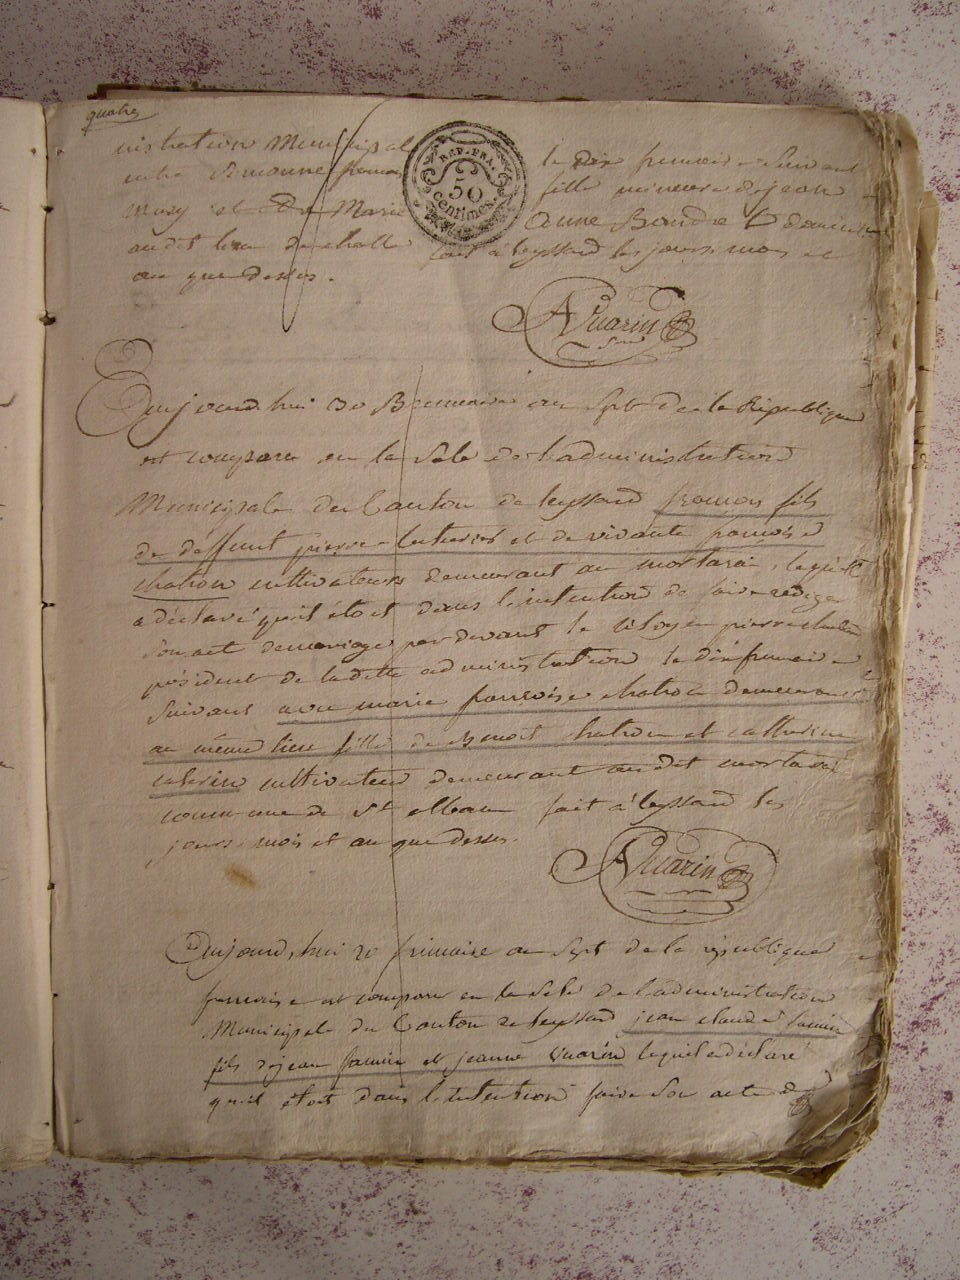 quatre
nistration Municipal le dix frimaire suivant
entre Simonne fille mineure de jean
Mury et De Marie Anne Boudret
audit lieu de challe fait à leyssard les jours mois et
an que dessus.
REP. FRA.
50
centimes.
AVuarin
Aujourd hui 30 Brumaire an sept de la République
est comparu en la Sale de l'administration
Municipale du Canton de leyssard francois fils
de deffunt pierre et de vivante francoise
chatron cultivateurs demeurant au mortarai, lequel
a déclaré qu'il étoit dans l'intention de faire rediger
son act de mariage par devant le citoyen pierre
président de ladite administration le dix frimaire
suivant avec marie francoise chatron demeurant
au même lieu fille de Benoit chatron et catherine
cultivateur demeurant audit mortarai
commune de St alban fait à leyssard les
jours, mois et an que dessus.
AVuarin
Aujourd, hui 20 frimaire an sept de la république
francoise est comparu en la Sale de l'administration
Municipale du Canton de leyssard jean claude
fils de jean et jeanne Vuarin lequel a déclaré
qu'il étoit dans l'intention faire son acte de